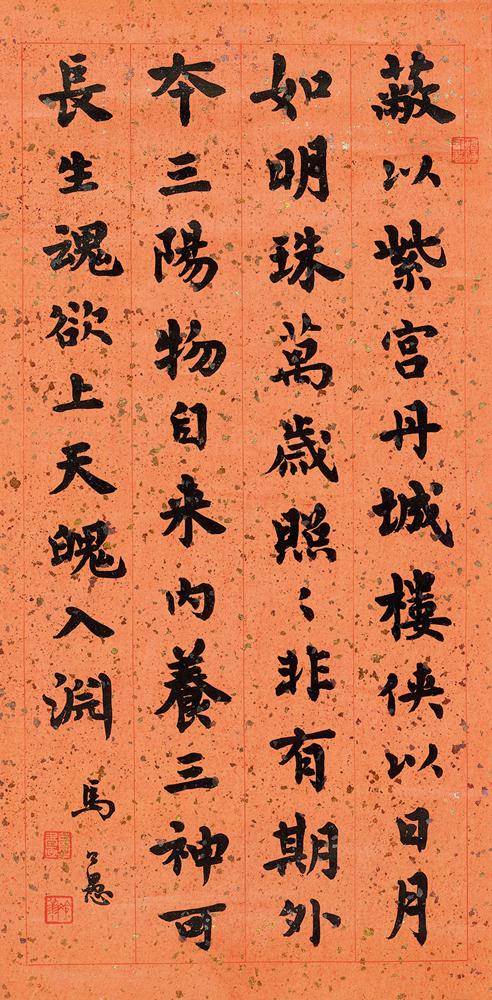 蔽以紫宮丹城樓俠以日月
如明珠萬歲照〻非有期外
本三陽物自来内養三神可
長生魂欲上天魄入淵
馬公愚